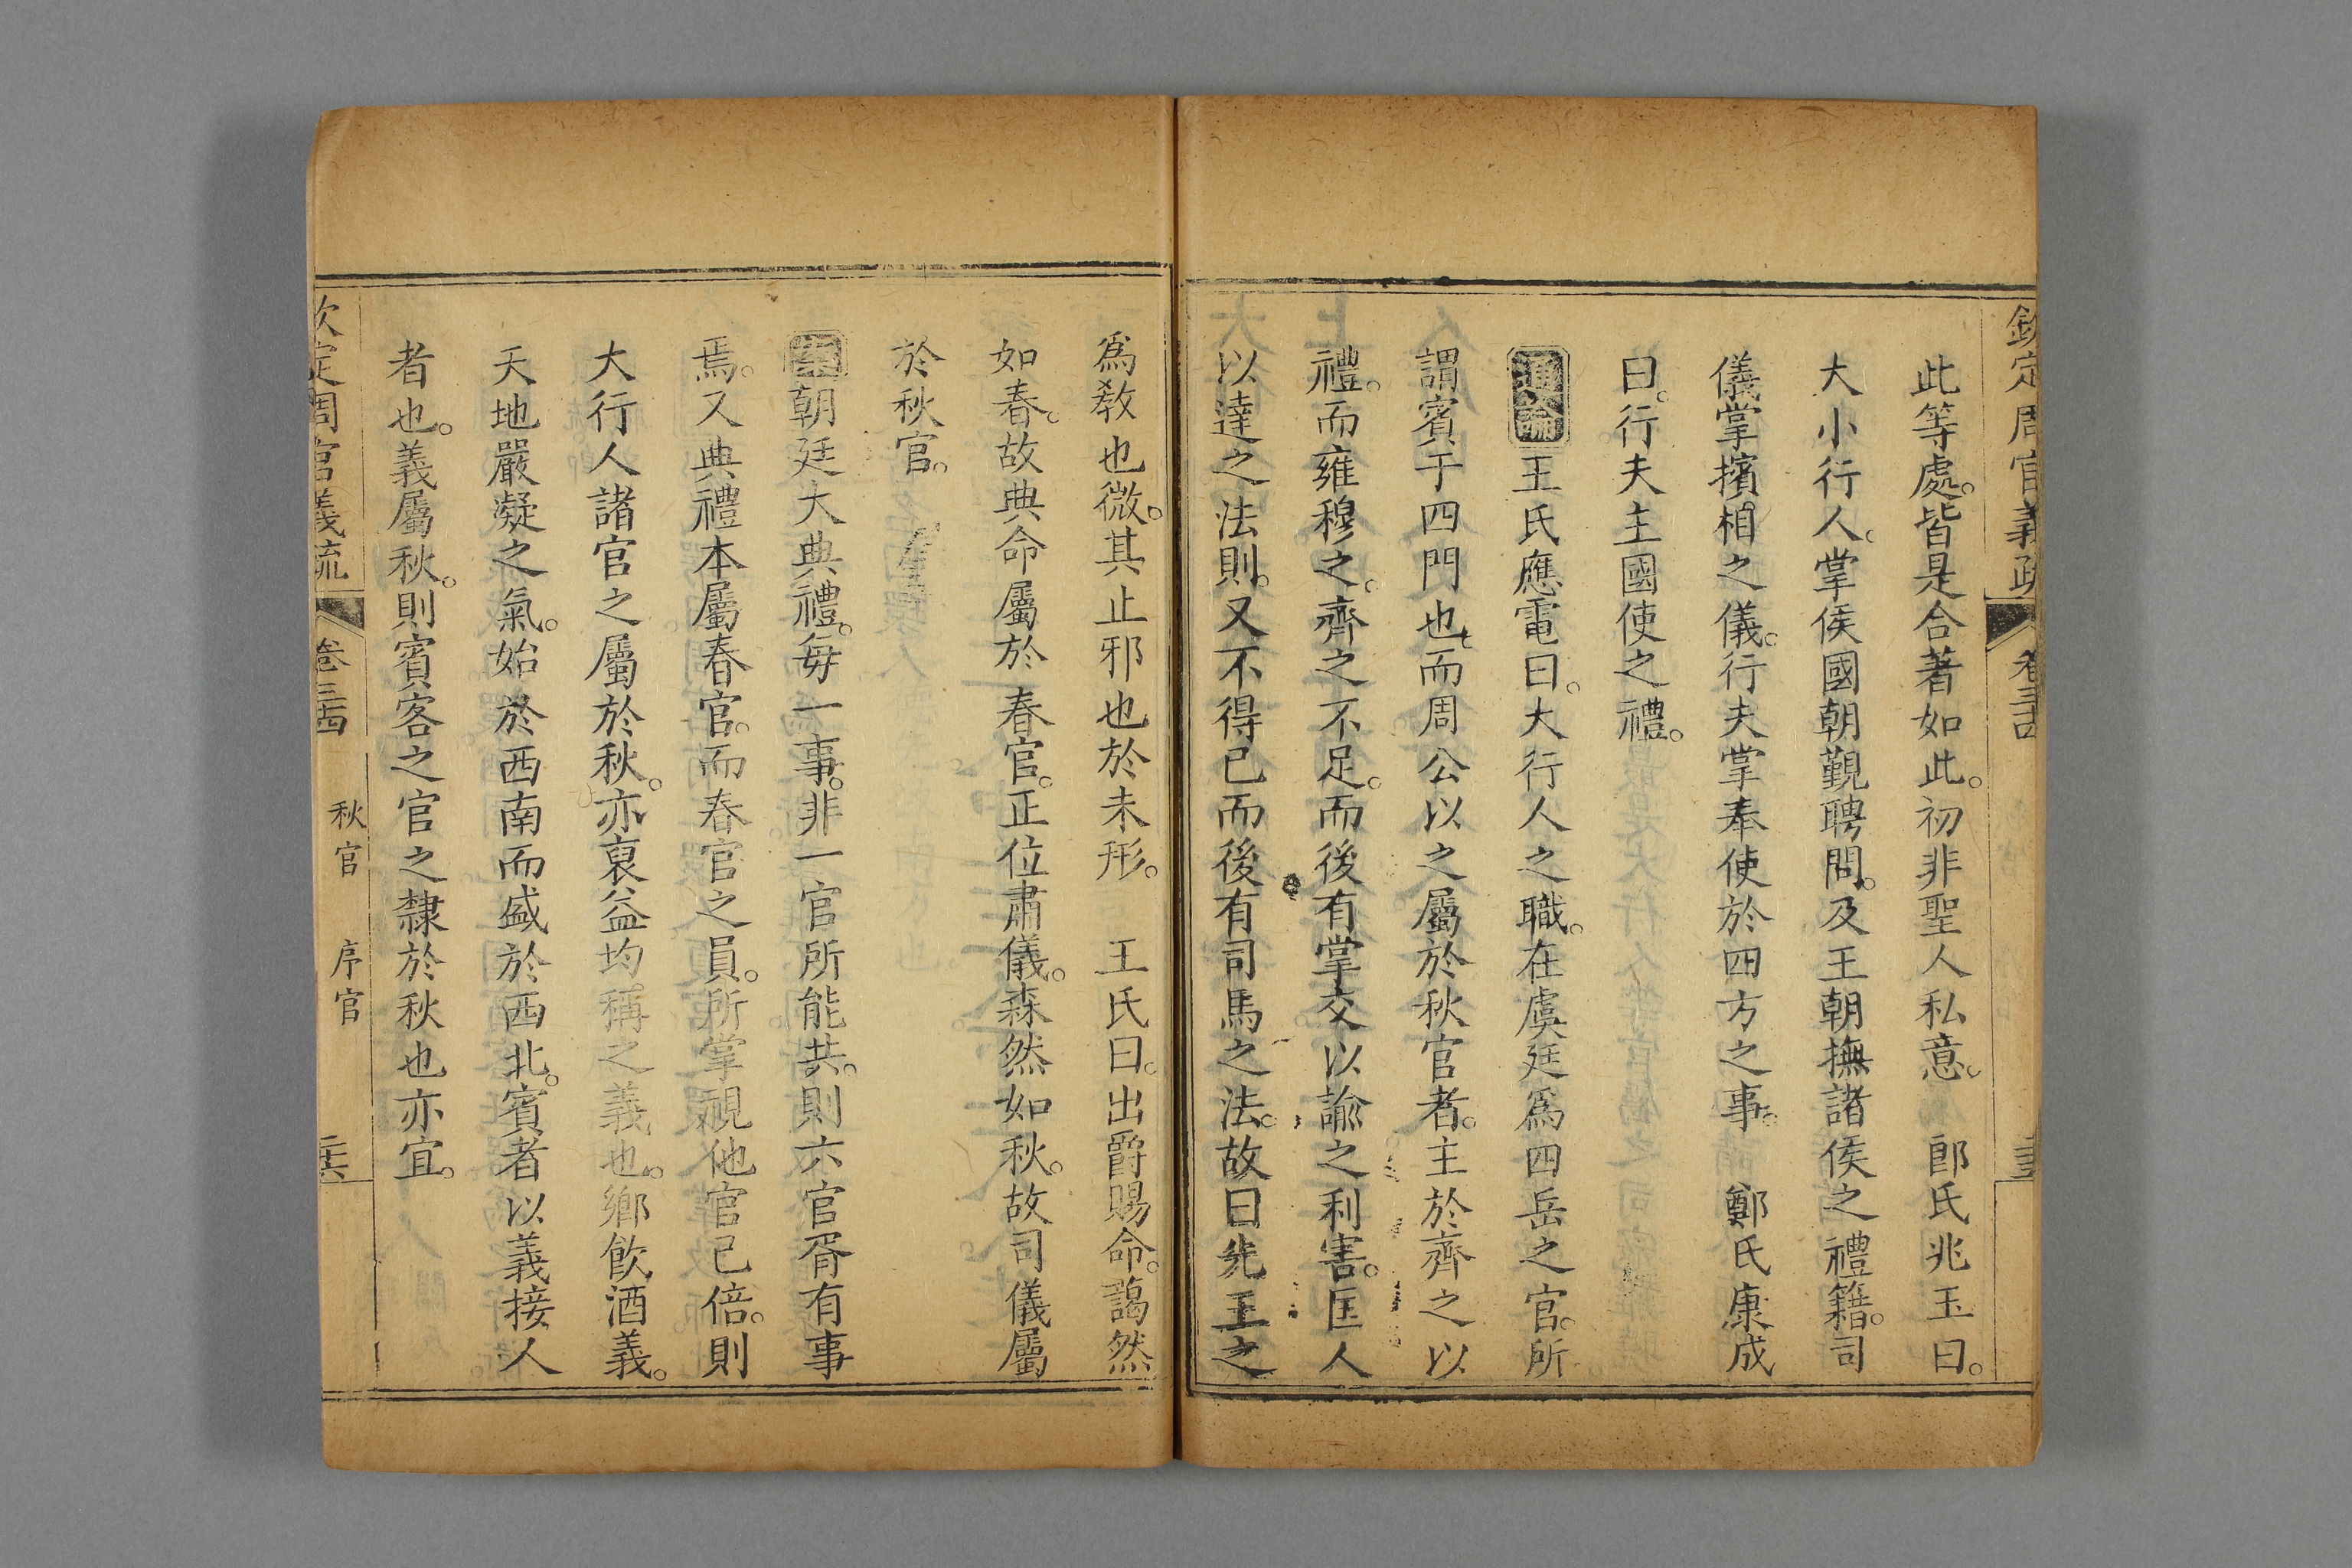 欽定周官義疏 卷三十四
此等處。皆是合著如此。初非聖人私意。 郎氏兆玉曰。
大小行人。掌侯國朝覲聘問。及王朝撫諸侯之禮籍。司
儀掌擯相之儀。行夫掌奉使於四方之事。 鄭氏康成
曰。行夫主國使之禮。
通論王氏應電曰。大行人之職。在虞廷爲四岳之官。所
謂賓于四門也。而周公以之屬於秋官者。主於齊之以
禮。而雍穆之。齊之不足。而後有掌交以諭之利害。匡人
以達之法則。又不得已而後有司馬之法。故曰先王之
爲敎也微。其止邪也於未形。 王氏曰。出爵賜命。藹然
如春。故典命屬於春官。正位肅儀。森然如秋。故司儀屬
於秋官。
案朝廷大典禮。毎一事。非一官所能共。則六官胥有事
焉。又典禮本屬春官。而春官之員。所掌視他官已倍。則
大行人諸官之屬於秋。亦裒益均稱之義也。鄉飮酒義。
天地嚴凝之氣。始於西南而盛於西北。賓者以義接人
者也。義屬秋。則賓客之官之隸於秋也亦宜。
欽定周官義疏 卷三十四 秋官 序官